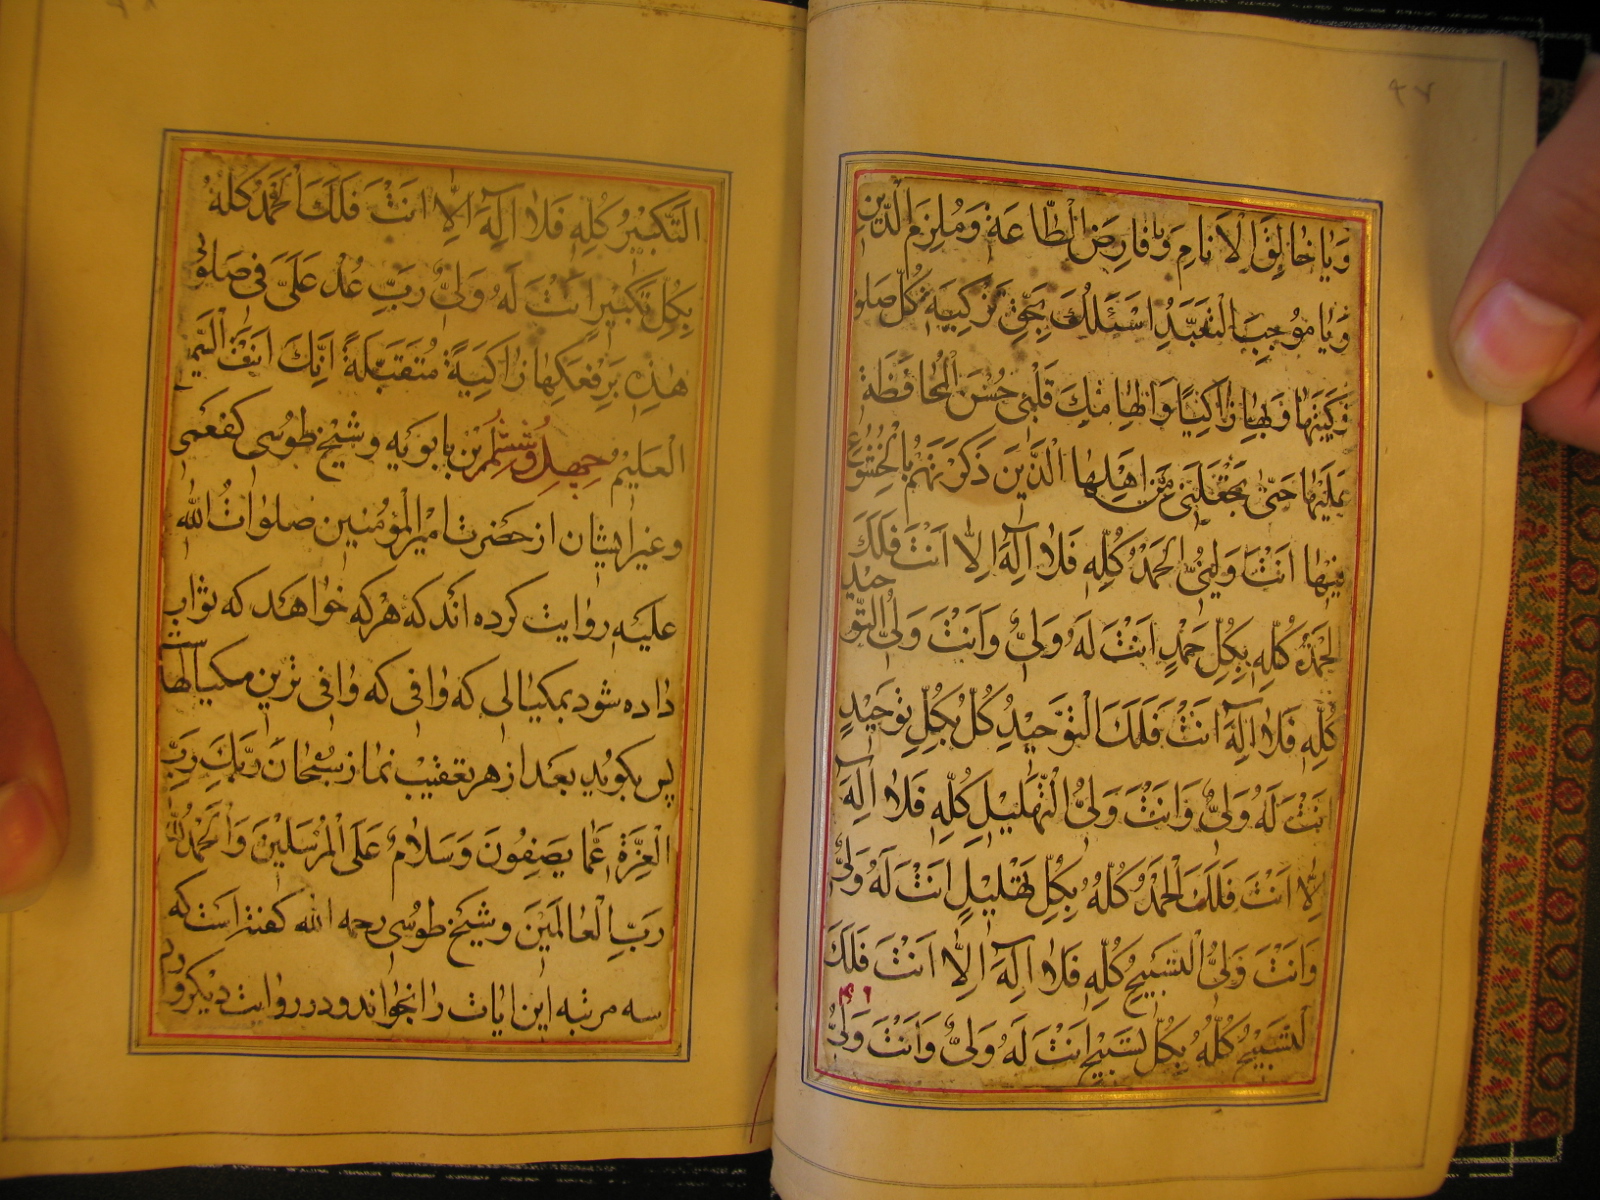 ۴۷
وَيٰا خٰالِقَ الْاَنٰامِ وَيٰا فٰارِضَ الطّٰاعَةِ وَمُلْزِمَ الدّٖينِ
وَيٰا مُوجِبَ التَّعَبُّدِ اَسْئَلُكَ بِحَقِّ تَزْكِيَةِ كُلِّ صَلوٰ
عَلَيْهٰا حَتّٰى تَجْعَلَنٖى مِنْ اَهْلِهَا الَّذٖينَ ذَكَرْتَهُمْ بِالْخُشُوعِ
فٖيهٰا اَنْتَ وَلِىُّ الْحَمْدِ كُلِّهِ فَلٰا اِلٰهَ اِلّٰا اَنْتَ فَلَكَ
الْحَمْدُ كُلُّهُ بِكُلِّ حَمْدٍ اَنْتَ لَهُ وَلِىٌّ وَاَنْتَ وَلِىُّ التَّوحٖيدِ
كُلِّهِ فَلٰا اِلٰهَ اَنْتَ فَلَكَ التَّوْحٖيدُ كُلُّ بِكُلِّ تَوْحٖيدٍ
اَنْتَ لَهُ وَلِىٌّ وَاَنْتَ وَلِىُّ التَّهْلٖيلِ كُلِّهِ فَلٰا اِلٰهَ
اِلّٰا اَنْتَ فَلَكَ الْحَمْدُ كُلُّهُ بِكُلِّ تَهْلٖيلٍ اَنْتَ لَهُ وَلِىٌّ
وَاَنْتَ وَلِىُّ التَّسْبٖيحِ كُلِّهِ فَلٰا اِلٰهَ اِلّٰا اَنْتَ فَلَكَ
التَّسْبٖيحُ كُلُّهُ بِكُلِّ تَسْبٖيحٍ اَنْتَ لَهُ وَلِىٌّ وَاَنْتَ وَلِىُّ
التَّكْبٖيرِ كُلِّهِ فَلٰا اِلٰهَ اِلّٰا اَنْتَ فَلَكَ الْحَمْدُ كُلُّهُ
بِكُلِّ تَكْبٖيرٍ اَنْتَ لَهُ وَلِىٌّ رَبِّ عُدْ عَلَىَّ فٖى صَلوٰتٖى
هٰذِهِ بِرَفْعِكَهٰا زٰاكِيَةً مُتَقَبَّلَةً اِنَّكَ اَنْتَ السَّمٖيعُ
الْعَلٖيمُ چهل وششم ابن بابويه و شيخ طوسى كفعمى
و غير ايشان از حضرت امير المؤمنين صلوات الله
عليه روايت كرده اند كه هركه خواهد كه ثواب
داده شود بمكيالى كه وافى كه وافى ترين مكيالهاست
پس بگويد بعد از هر تعقيب نماز سُبْحٰانَ رَبِّكَ رَبِّ
الْعِزَّةِ عَمّٰا يَصِفُونَ وَسَلٰامٌ عَلَى الْمُرْسَلٖينَ وَالْحَمْدُ لِلّٰهِ
رَبِّ الْعٰالَمٖينَ و شيخ طوسى رحمه الله گفته است كه
سه مرتبه اين ايات را بخواند و در روايت ديگر وارد